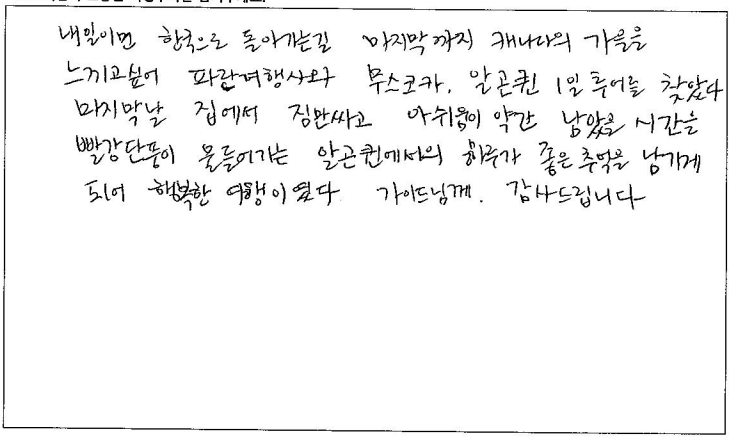 내일이면 한국으로 돌아가는길 마지막까지 캐나다의 가을을
느끼고싶어 파란여행사와 무스코카, 알곤퀸 1일 투어를 찾았다
마지막날 집에서 짐만싸고 아쉬움이 약간 남았을 시간을
빨강단풍이 물들어가는 알곤퀸에서의 하루가 좋은 추억을 남기게
되어 행복한 여행이였다. 가이드님께. 감사드립니다